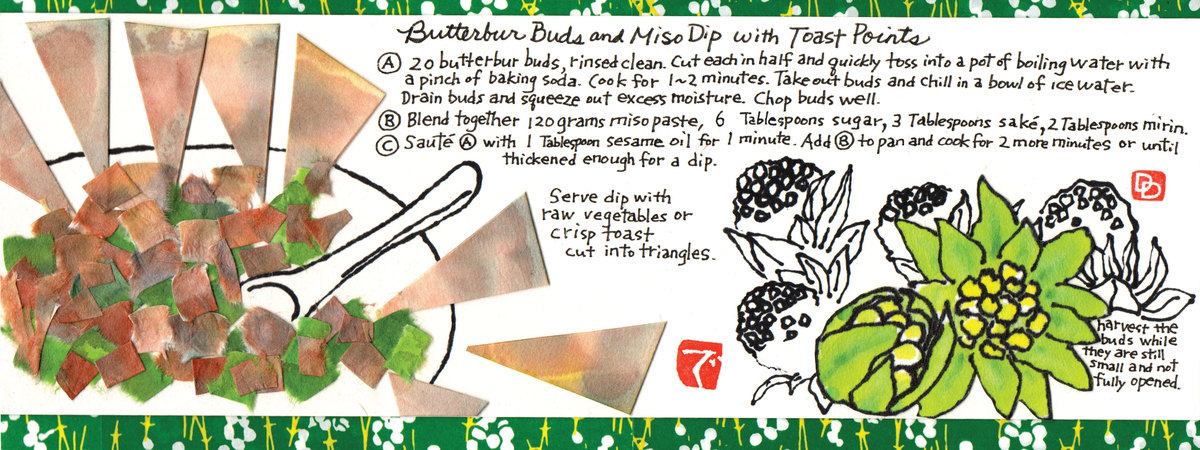 Butterbur Buds and Miso Dip with Toast Points
Ⓐ 20 butterbur buds, rinsed clean. Cut each in half and quickly toss into a pot of boiling water with
a pinch of baking soda. Cook for 1~2 minutes. Take out buds and chill in a bowl of ice water.
Drain buds and squeeze out excess moisture. Chop buds well.
Ⓑ Blend together 120 grams miso paste, 6 Tablespoons sugar, 3 Tablespoons saké, 2 Tablespoons mirin.
Ⓒ Sauté Ⓐ with 1 Tablespoon sesame oil for 1 minute. Add Ⓑ to pan and cook for 2 more minutes or until
thickened enough for a dip.
Serve dip with
raw vegetables or
crisp toast
cut into triangles.
DD
harvest the
buds while
they are still
small and not
fully opened.